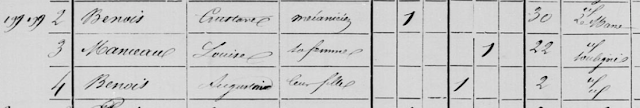 199 199 2 Benois Constant mécanicien 1 30 Le Mans
3 Manceau Louise sa femme 1 22
4 Benois Augustine leur fille 1 2